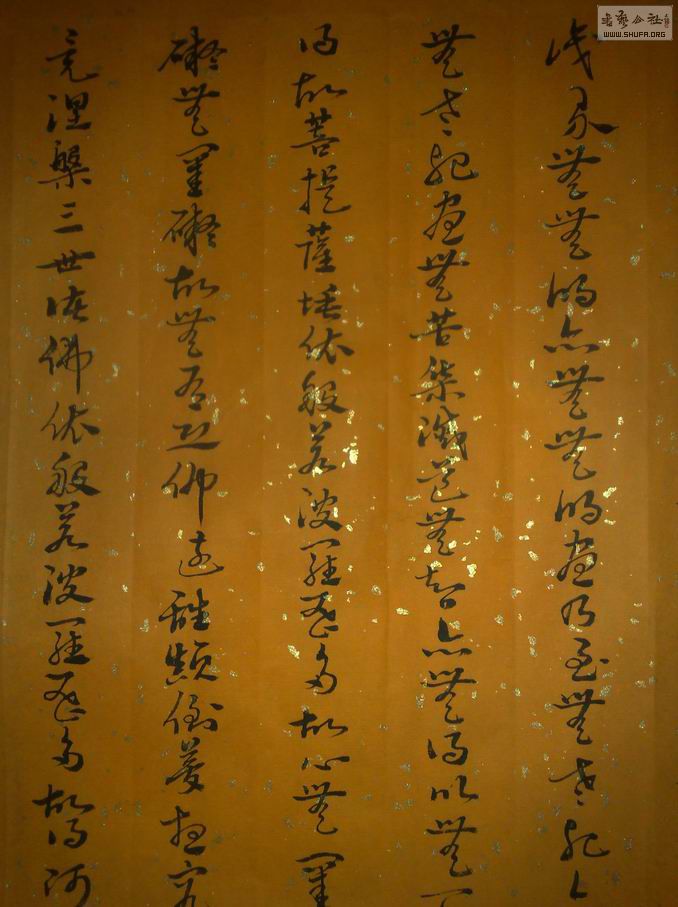 識界無無明亦無無明盡乃至無老死亦
無老死盡無苦集滅道無智亦無得以無所
得故菩提薩埵依般若波羅蜜多故心無罣
礙無罣礙故無有恐怖遠離顛倒夢想究
竟涅槃三世諸佛依般若波羅蜜多故得阿
書藝公社
WWW.SHUFA.ORG